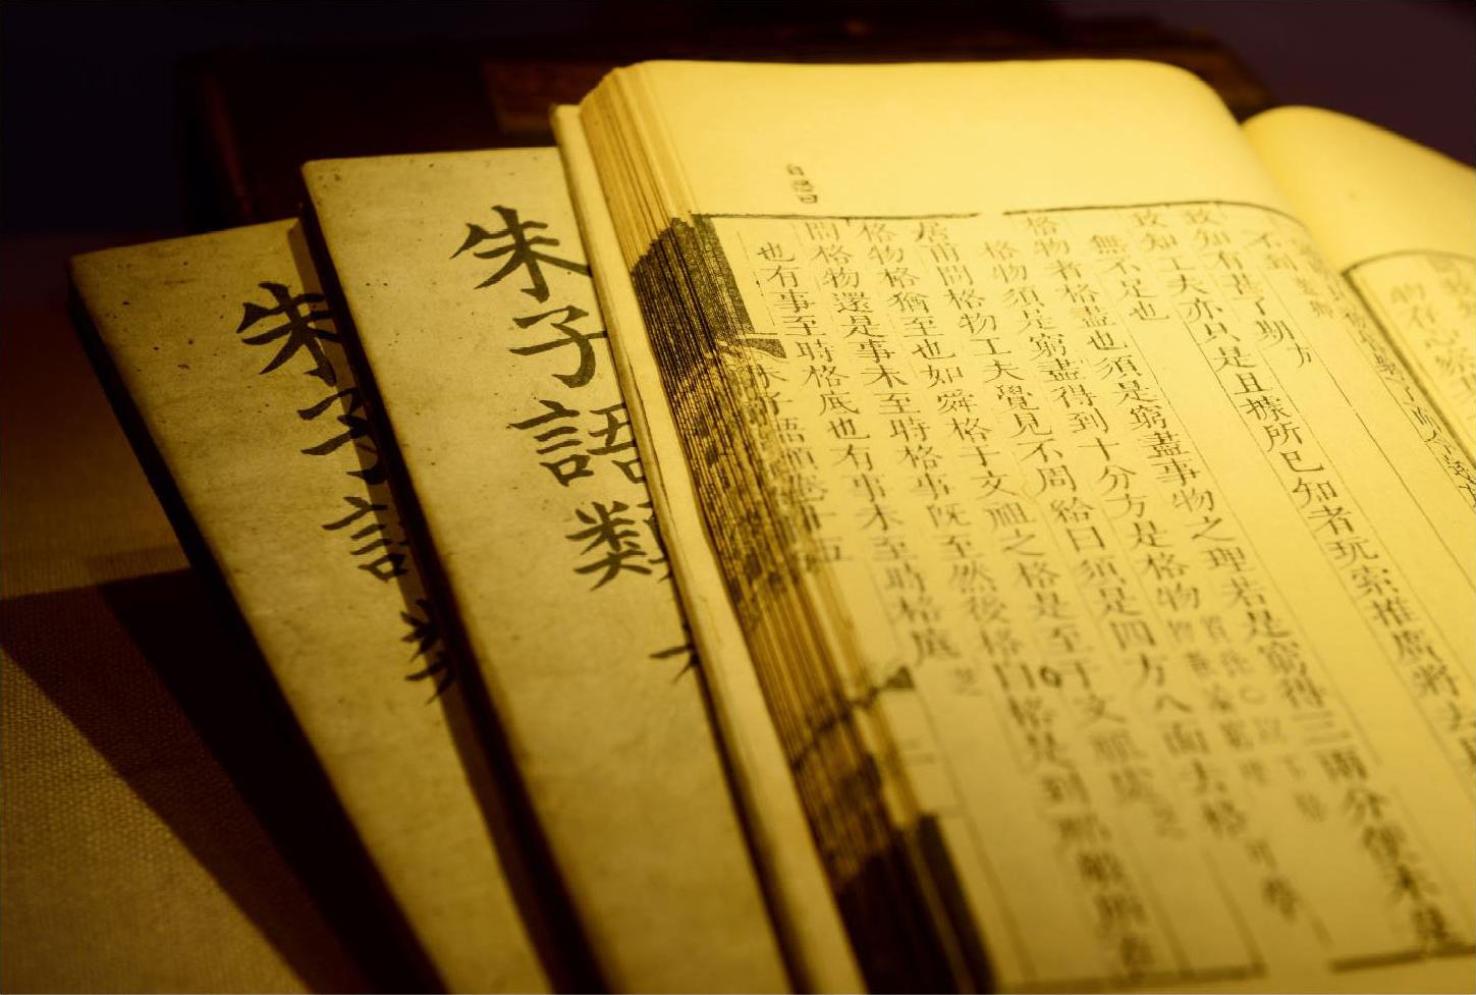 致知有甚了期 方
致知工夫亦只是且據所已知者玩索推廣將去
無不足也
格物者格盡也須是窮盡事物之理若是窮得三兩分便未是
格物須是窮盡得到十分方是格物
居甫問格物工夫覺見不周給曰須是四方八面去格 可學
格物格猶至也如舜格于文祖之格是至于文祖處 芝
問格物還是事未至時格事既至然後格曰格是到那般所在
也有事至時格底也有事未至時格底 芝
朱子語類卷十五
朱子語類
朱子語類